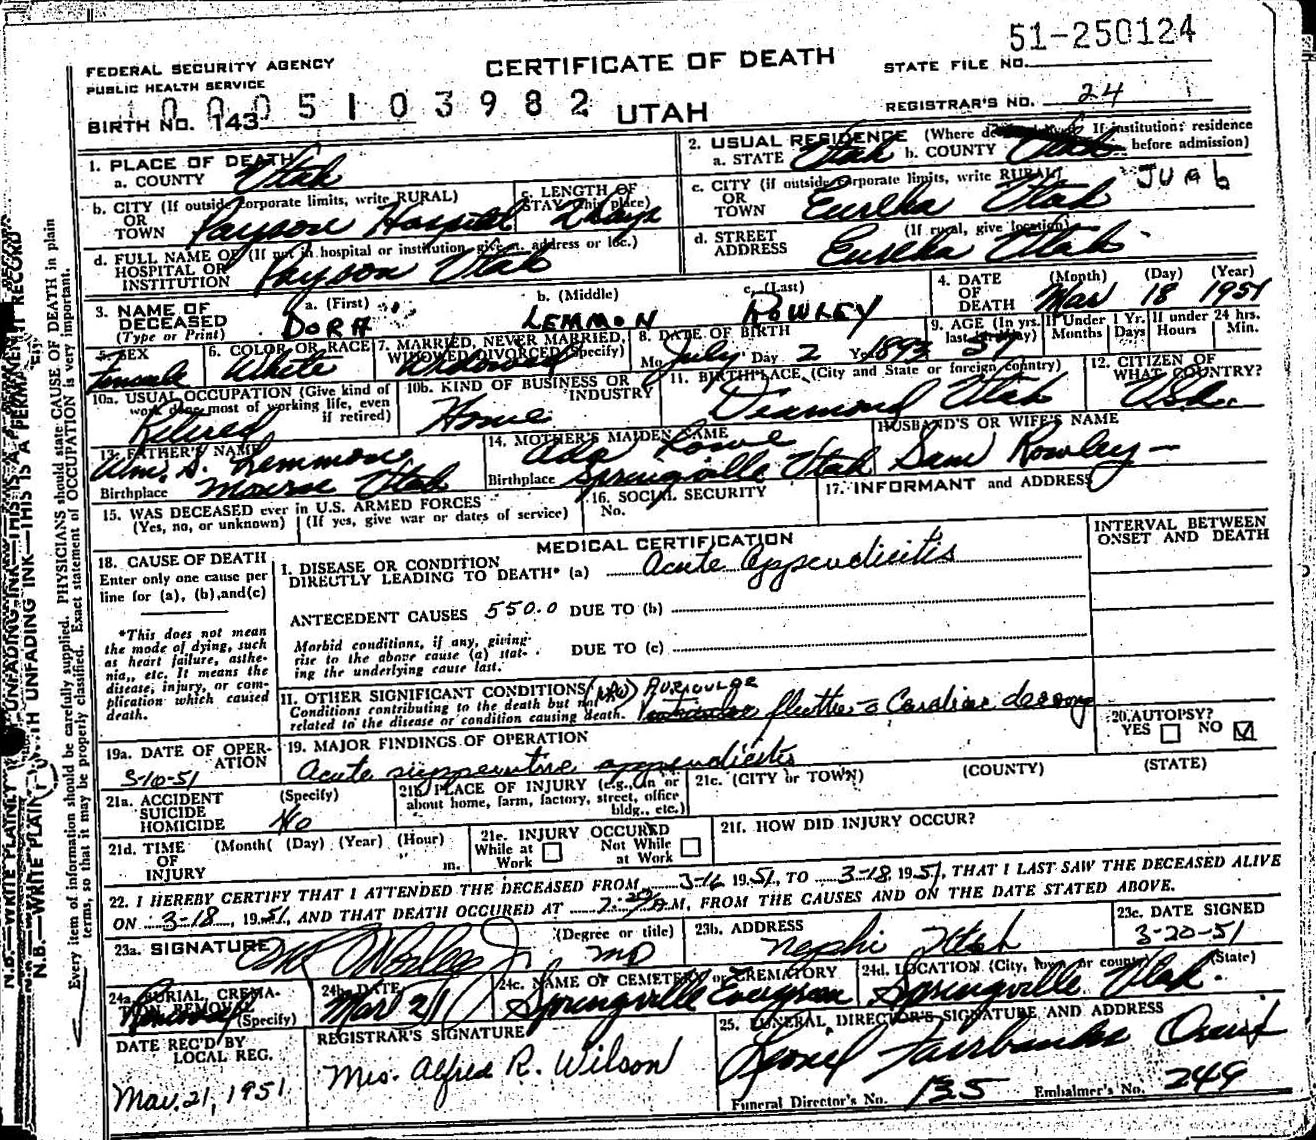 51-250124
FEDERAL SECURITY AGENCY
PUBLIC HEALTH SERVICE
CERTIFICATE OF DEATH
STATE FILE NO.
1 0 0 0 5 1 0 3 9 8 2
BIRTH NO. 143
UTAH
REGISTRAR'S NO. 24
1. PLACE OF DEATH
a. COUNTY Utah
b. CITY (If outside corporate limits, write RURAL)
OR
TOWN Payson Hospital
c. LENGTH OF
STAY (this place) 2 days
d. FULL NAME OF (If not in hospital or institution, give st. address or loc.)
HOSPITAL OR
INSTITUTION Payson Utah
2. USUAL RESIDENCE (Where If institution: residence
before admission)
a. STATE Utah b. COUNTY Utah
Juab
c. CITY (if outside corporate limits, write RURAL)
OR
TOWN Eureka Utah
d. STREET (If rural, give location)
ADDRESS Eureka Utah
3. NAME OF
DECEASED
(Type or Print)
a. (First) b. (Middle) c. (Last)
DORA LEMMON ROWLEY
4. DATE (Month) (Day) (Year)
OF
DEATH Mar 18 1951
5. SEX
Female
6. COLOR OR RACE
White
7. MARRIED, NEVER MARRIED,
WIDOWED DIVORCED (Specify)
Widowed
8. DATE OF BIRTH
Mo. July Day 2 Yr. 1893
9. AGE (In yrs. If Under 1 Yr. If under 24 hrs.
last birthday) Months Days Hours Min.
57
10a. USUAL OCCUPATION (Give kind of
work done most of working life, even
if retired)
Retired
10b. KIND OF BUSINESS OR
INDUSTRY
Home
11. BIRTHPLACE (City and State or foreign country)
Diamond Utah
12. CITIZEN OF
WHAT COUNTRY?
USA.
13. FATHER'S NAME
Wm. S. Lemmon
Birthplace Utah
14. MOTHER'S MAIDEN NAME
Ada Lowe
Birthplace Springville Utah
HUSBAND'S OR WIFE'S NAME
Sam Rowley
15. WAS DECEASED ever in U.S. ARMED FORCES
(Yes, no, or unknown) (If yes, give war or dates of service)
16. SOCIAL SECURITY
No.
17. INFORMANT and ADDRESS
MEDICAL CERTIFICATION
INTERVAL BETWEEN
ONSET AND DEATH
18. CAUSE OF DEATH
Enter only one cause per
line for (a), (b), and (c)
*This does not mean
the mode of dying, such
as heart failure, asthe-
nia,, etc. It means the
disease, injury, or com-
plication which caused
death.
I. DISEASE OR CONDITION
DIRECTLY LEADING TO DEATH* (a) Acute Appendicitis
ANTECEDENT CAUSES 550.0 DUE TO (b)
Morbid conditions, if any, giving
rise to the above cause (a) stat-
ing the underlying cause last.
DUE TO (c)
II. OTHER SIGNIFICANT CONDITIONS
Conditions contributing to the death but not
related to the disease or condition causing death.
AURICULAR
flutter Cardiac
20. AUTOPSY?
YES NO
19a. DATE OF OPER-
ATION
3-10-51
19. MAJOR FINDINGS OF OPERATION
Acute suppurative appendicitis
21a. ACCIDENT (Specify)
SUICIDE
HOMICIDE No
21b. PLACE OF INJURY (e.g., in or
about home, farm, factory, street, office
bldg., etc.)
21c. (CITY or TOWN) (COUNTY) (STATE)
21d. TIME (Month( (Day) (Year) (Hour)
OF
INJURY m.
21e. INJURY OCCURED
While at Not While
Work at Work
21f. HOW DID INJURY OCCUR?
22. I HEREBY CERTIFY THAT I ATTENDED THE DECEASED FROM 3-16 1951, TO 3-18 1951, THAT I LAST SAW THE DECEASED ALIVE
ON 3-18, 1951, AND THAT DEATH OCCURED AT A.M, FROM THE CAUSES AND ON THE DATE STATED ABOVE.
23a. SIGNATURE (Degree or title)
MD
23b. ADDRESS
Nephi Utah
23c. DATE SIGNED
3-20-51
24a. BURIAL, CREMA-
TION, REMOVAL
(Specify)
24b. DATE
Mar 21
24c. NAME OF CEMETERY or CREMATORY
Springville Evergreen
24d. LOCATION (City, town, or county) (State)
Springville Utah.
DATE REC'D BY
LOCAL REG.
Mar. 21, 1951
REGISTRAR'S SIGNATURE
Mrs. Alfred R. Wilson
25. FUNERAL DIRECTOR'S SIGNATURE AND ADDRESS
Fairbanks
Funeral Director's No. 135 Embalmer's No. 249
N.B.—WRITE PLAINLY WITH UNFADING INK—THIS IS A PERMANENT RECORD
Every item of information should be carefully supplied. PHYSICIANS should state CAUSE OF DEATH in plain
terms, so that it may be properly classified. Exact statement of OCCUPATION is very important.